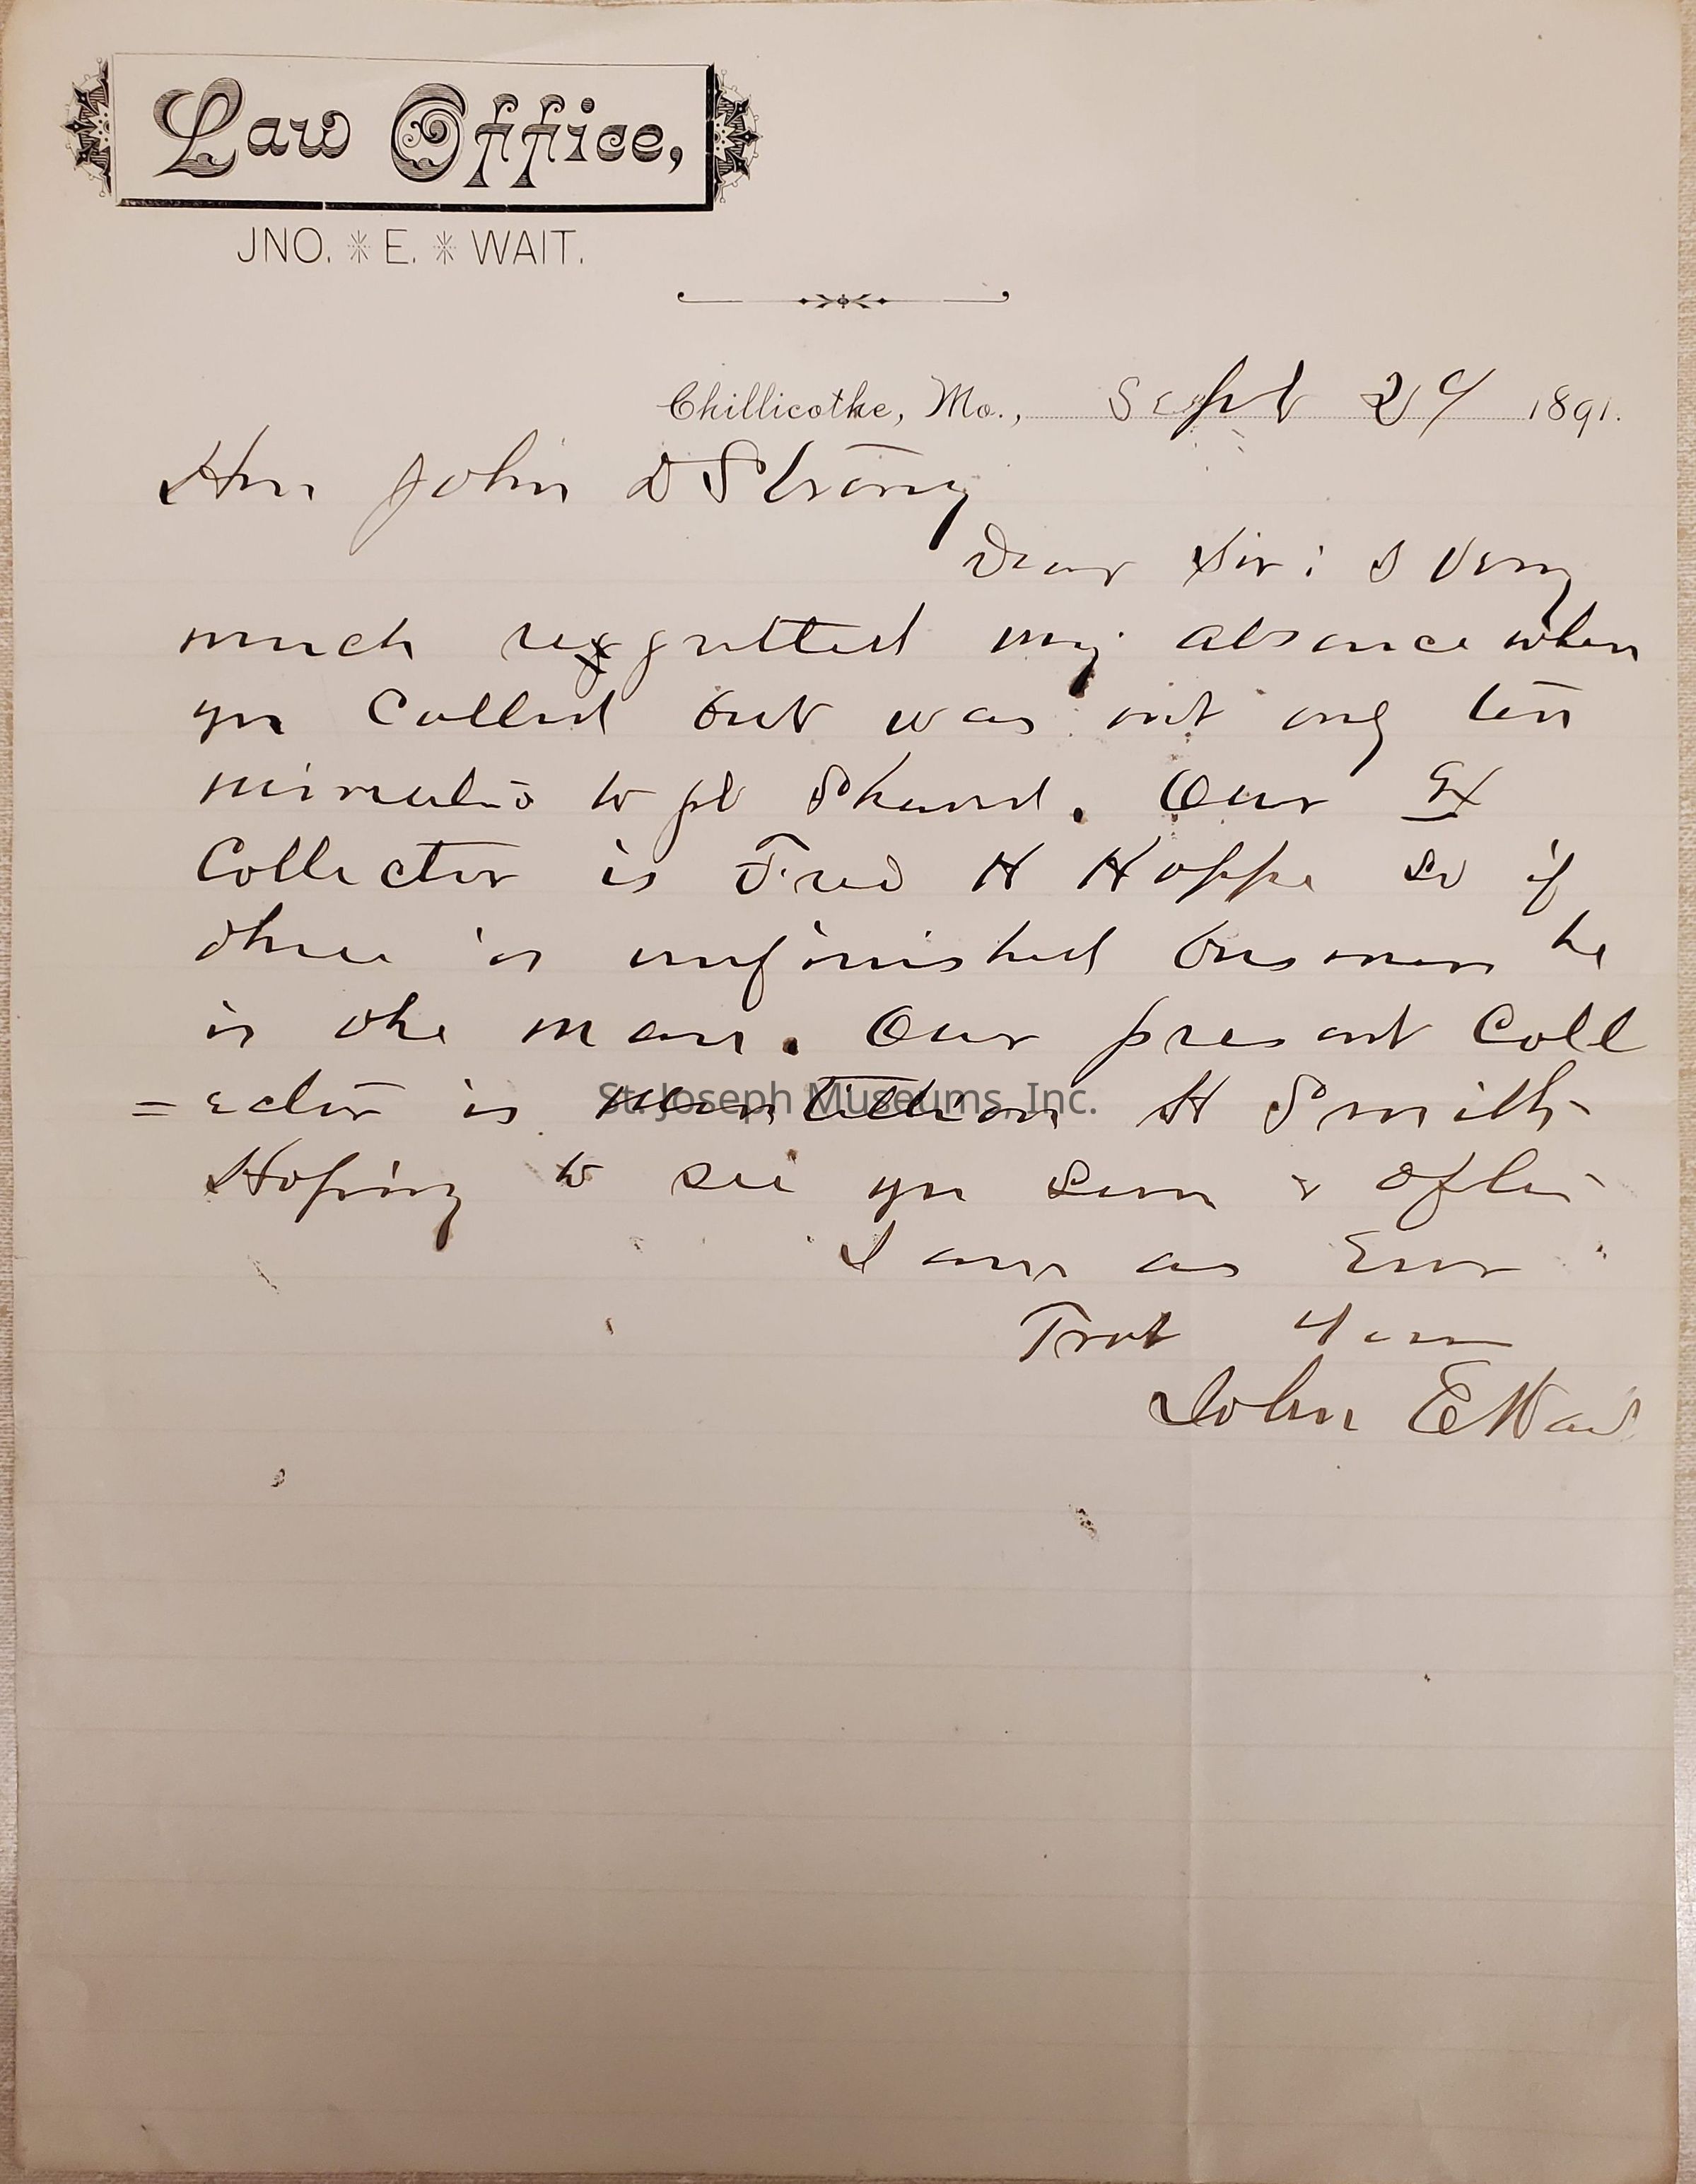 Law Office,
JNO. E. WAIT.
Chillicothe, Mo., Sept 29 1891.
Hon John D Strong
Dear Sir: I very
much regretted my absence when
you called but was out only ten
minutes to get Shaved. Our Ex
Collector is Fred H Hoppe so if
there is unfinished business he
is the man. Our present Coll
=ector is William H Smith
St. Joseph Museums, Inc.
Hoping to see you soon & often
I am as Ever
Yours
John E Wait